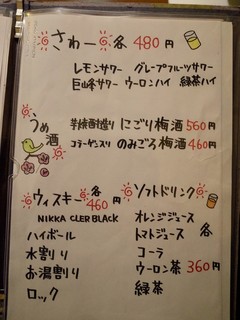 さわー 各 480円
レモンサワー グレープフルーツサワー
巨峰サワー ウーロンハイ 緑茶ハイ
うめ酒
芋焼酎造り にごり梅酒 560円
コラーゲン入り のみごろ梅酒 460円
ウィスキー 各 460円
NIKKA CLER BLACK
ハイボール
水割り
お湯割り
ロック
ソフトドリンク
オレンジジュース
トマトジュース 各
コーラ
ウーロン茶 360円
緑茶